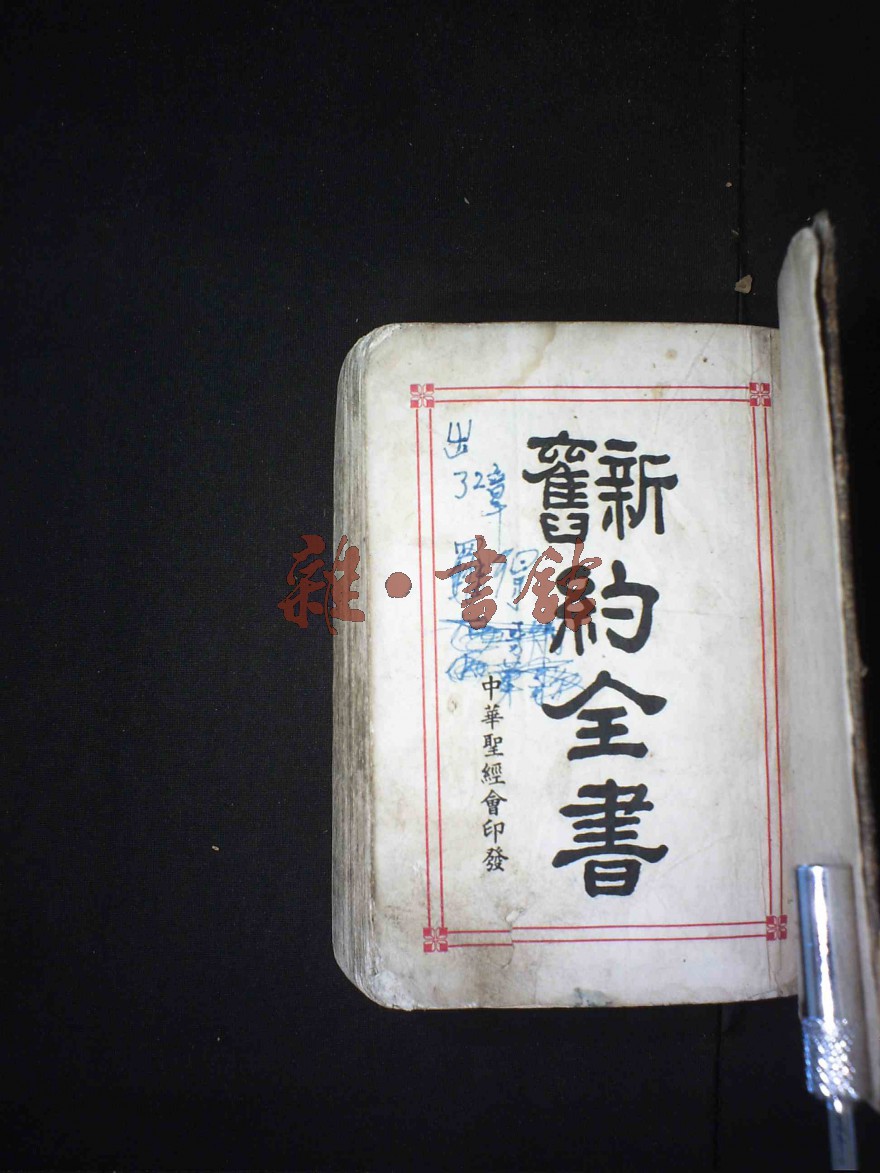 新舊約全書
中華聖經會印發
出
32章
雜·書館